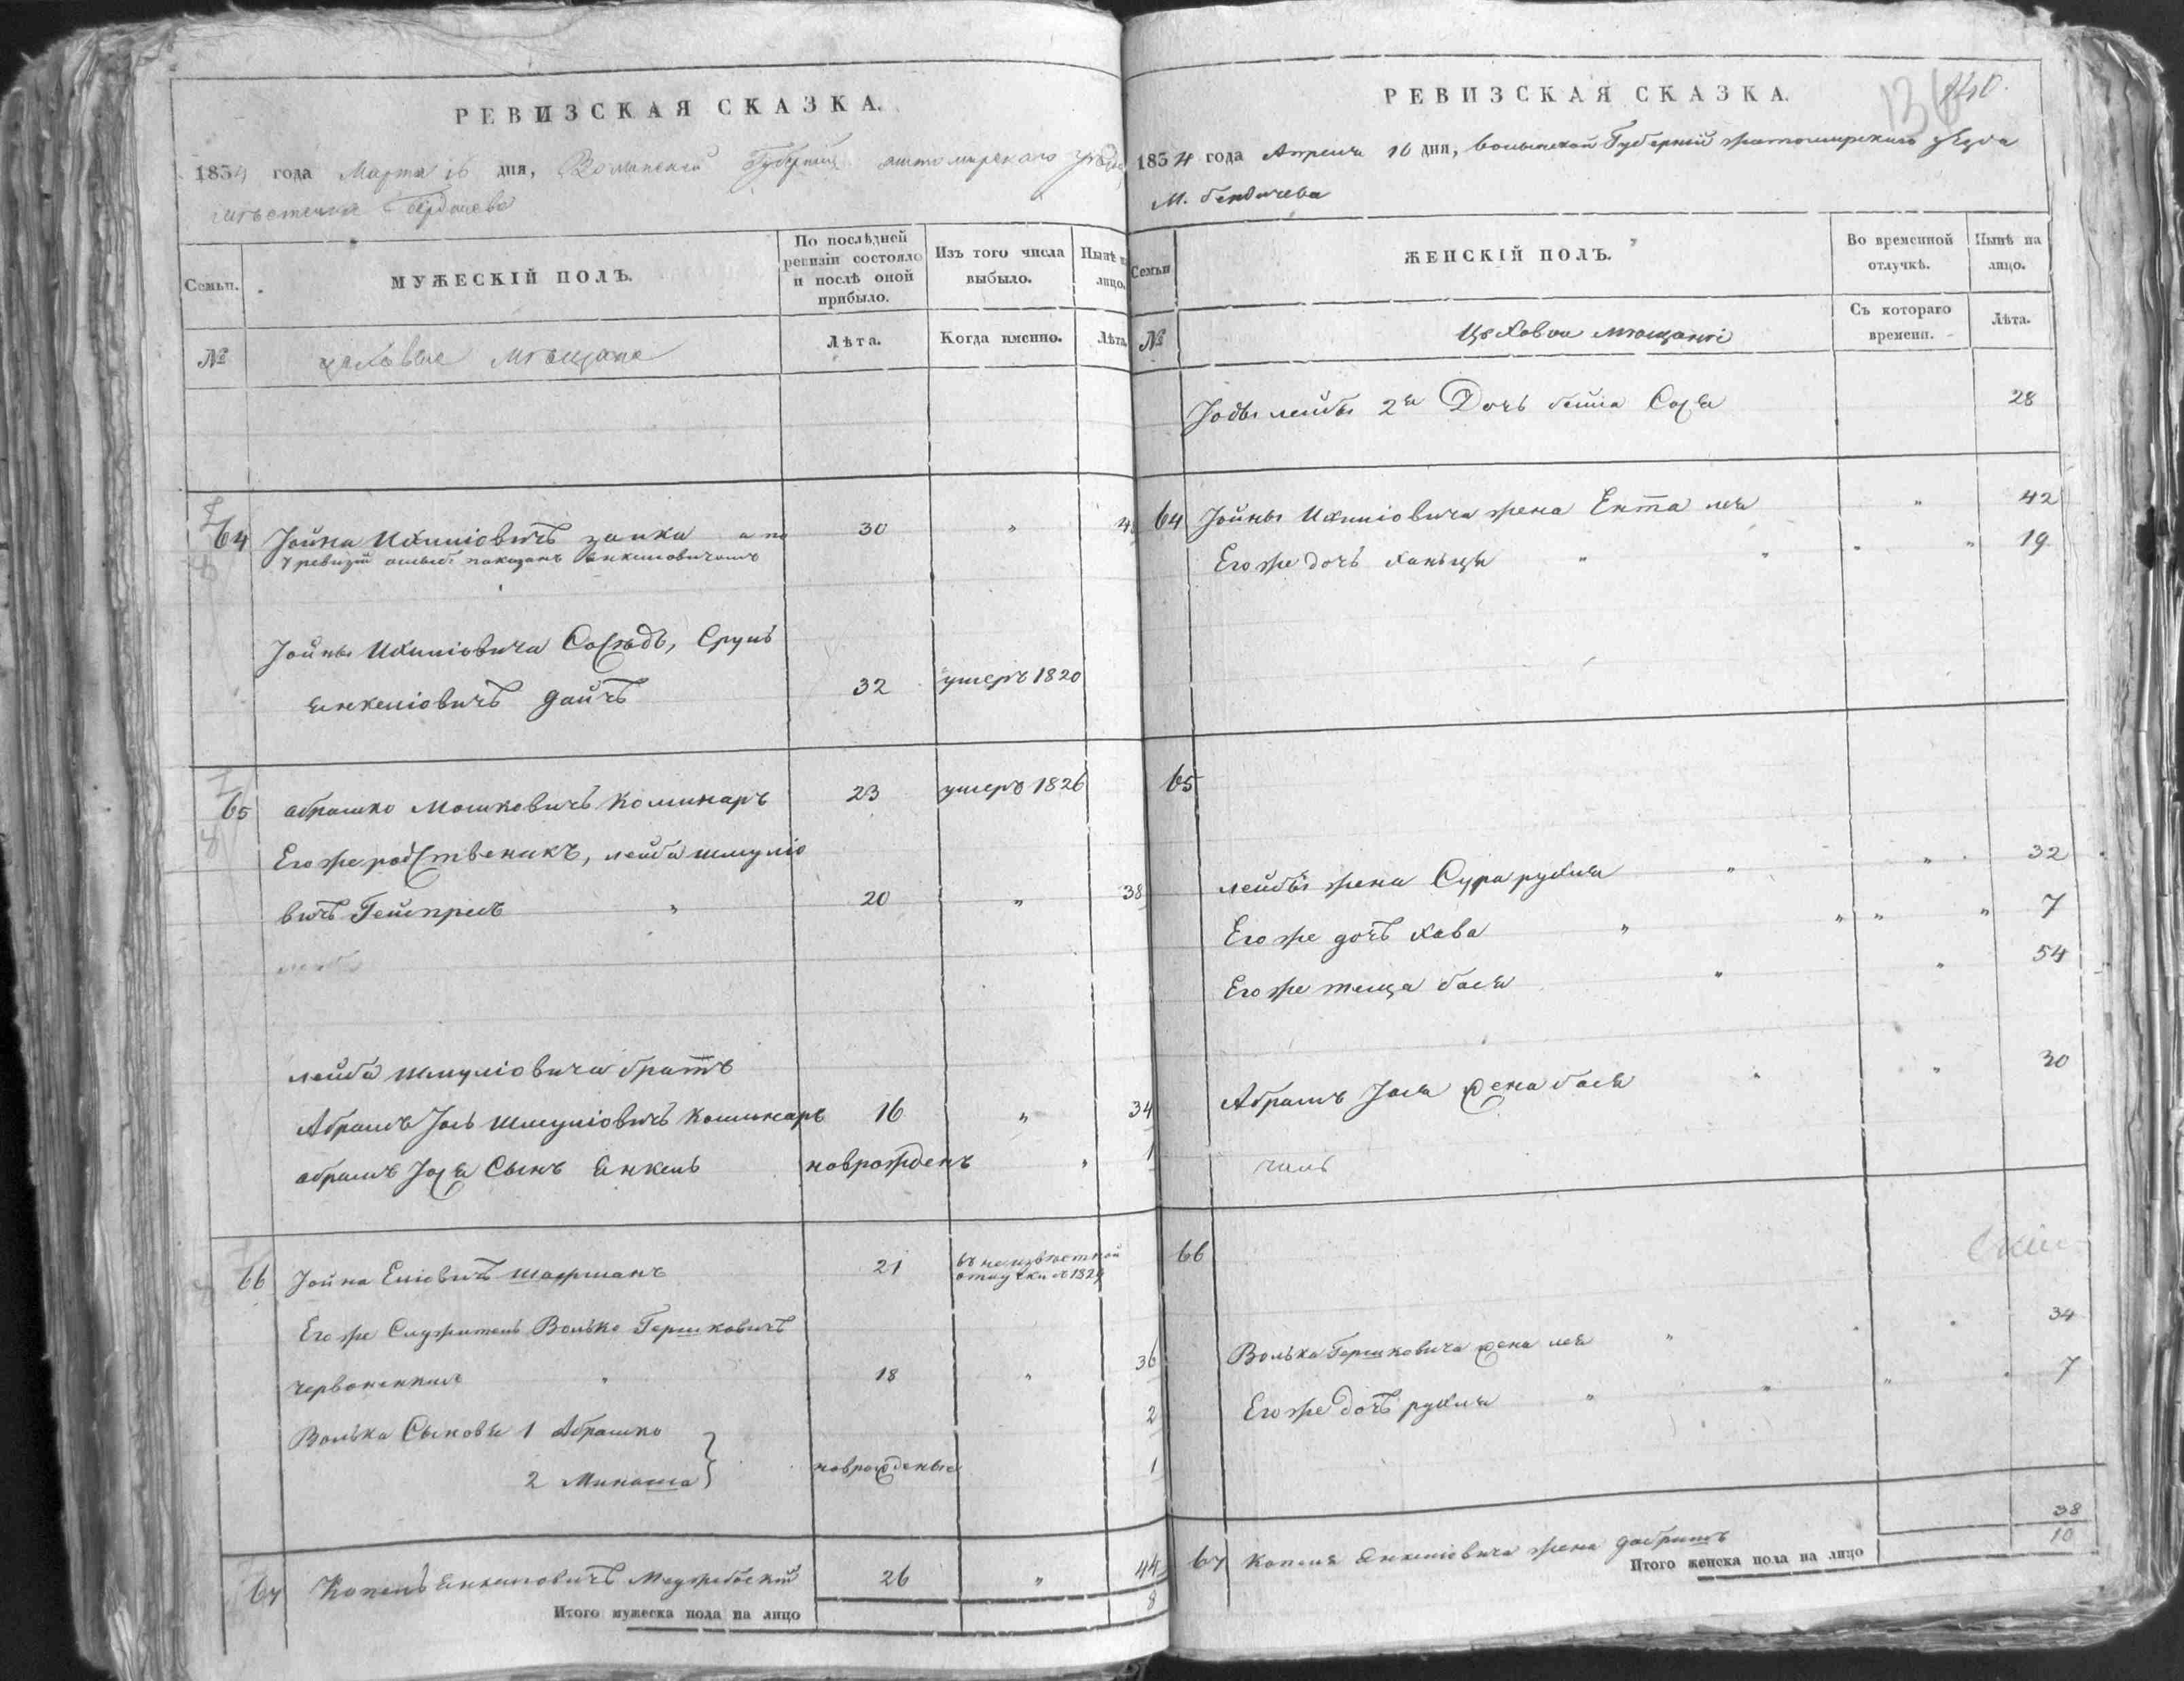 РЕВИЗСКАЯ СКАЗКА.
1834 года Марта 16 дня, Волынской Губерніи житомирскаго уѣзда
мѣстечка Бердичева
Семьи.
МУЖЕСКІЙ ПОЛЪ.
По послѣдней ревизіи состояло и послѣ оной прибыло.
Изъ того числа выбыло.
Нынѣ на лицо.
№
цеховые мѣщане
Лѣта.
Когда именно.
Лѣта.
64 Іойна Ихиліовичъ заика а по 30 "
7 ревизіи ошыб: показанъ Янкелиовичомъ
Іойны Ихиліовича Сосѣдъ, Сруль
Янкеліовичъ дайчъ 32 умеръ 1820
65 абрашко Мошковичъ Коминаръ 23 умеръ 1826
Его же родственикъ, лейба шмуліо
вичъ 20 " 38
лейба шмуліовича братъ
Абрамъ Іось Шмуліовичъ Коминаръ 16 " 34
абрамъ Іося Сынъ Янкель новрожденъ " 1
66 Іойна Еліовичъ шафманъ 21 въ неизвѣстной отлучки с 1829
Его же Служитель Волько Гершковичъ
18 " 36
Волька Сыновья 1 Абрашко 2
2 Минаша } новрожденые 1
67 Копель Янкелиовичъ Меджибоскій 26 " 44
Итого мужеска пола на лицо 8
РЕВИЗСКАЯ СКАЗКА.
136 140.
1834 года Апреля 16 дня, волынской Губерніи житомирскаго уезда
М. бердичева
Семьи
ЖЕНСКІЙ ПОЛЪ.
Во временной отлучкѣ.
Нынѣ на лицо.
№
Цеховои мещанкі
Съ котораго времени.
Лѣта.
лейбы 2я Дочь бейла Сося 28
64 Іойны Ихиліовича жена Ента лея " 42
Его же дочь ханьця " " " " 19
65
лейбы жена Сура рухля " " 32
Его же дочъ хава " " " " 7
Его же теща бася " " 54
Абрамъ Іося жена бася " " 30
66
Волька Гершковича жена лея " " " 34
Его же дочъ рухля " " " " 7
67 Копеля Янкеліовича жена добришъ 38
Итого женска пола на лицо 10